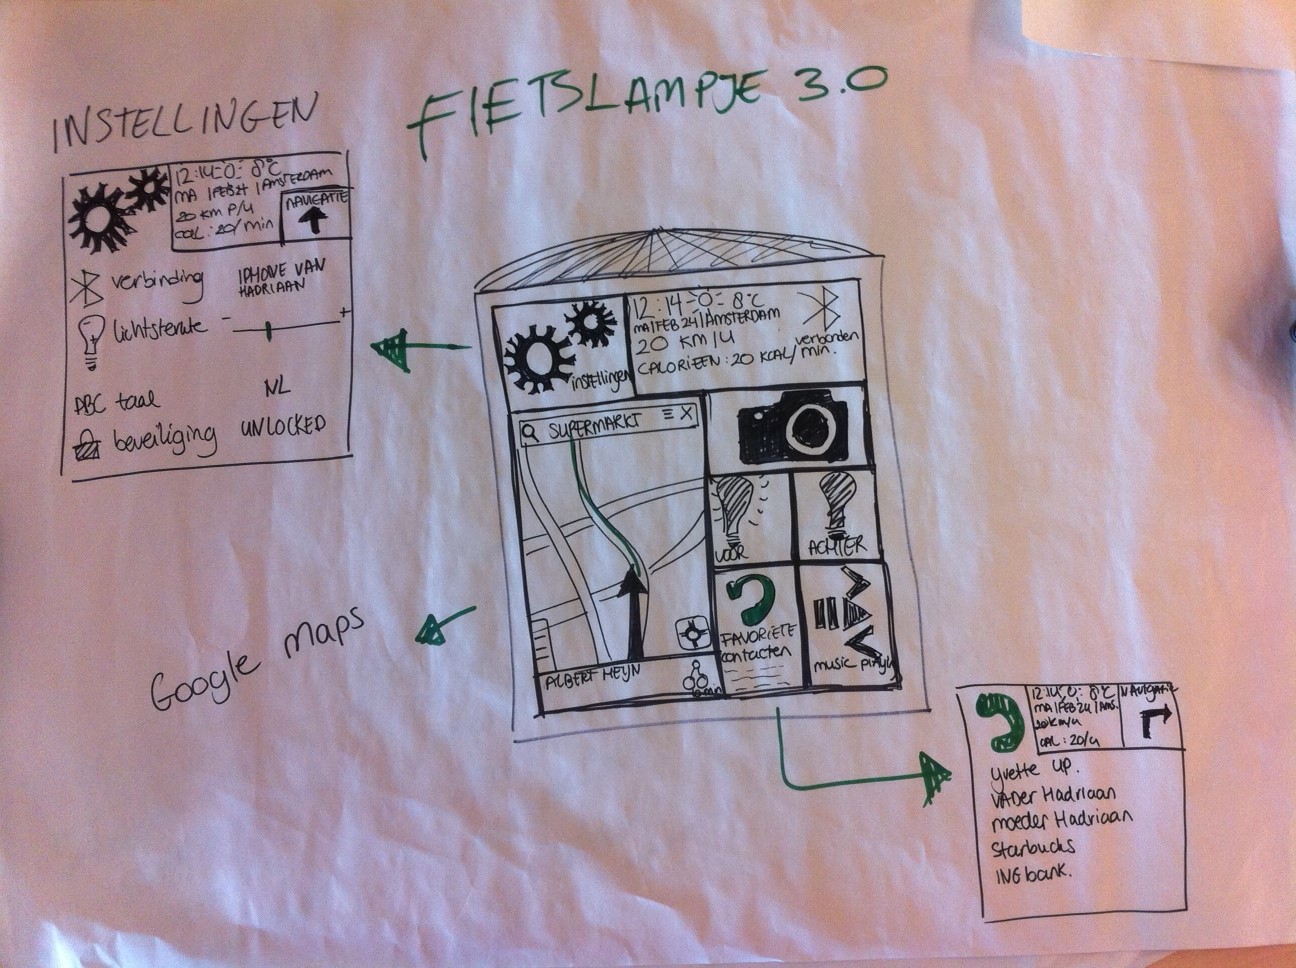 FIETSLAMPJE 3.0
INSTELLINGEN
12:14-O- 8°C
MA |FEB24 |AMSTERDAM
20 KM P/U
CAL: 20/min
NAVIGATIE
verbinding
IPHONE VAN
HADRIAAN
lichtsterkte
- +
ABC taal
NL
beveiliging
UNLOCKED
instellingen
12:14-O- 8°C
MA|FEB 24|AMSTERDAM
20 KM/U
CALORIEEN: 20 KCAL/min.
verbonden
SUPERMARKT X
VOOR
ACHTER
FAVORIETE
contacten
music
ALBERT HEYN
Google maps
12:14-O- 8°C
MA|FEB24|AMS.
20km/u
CAL: 20/u
NAVIGATIE
yvette UP.
VADER Hadriaan
moeder Hadriaan
Starbucks
ING bank.